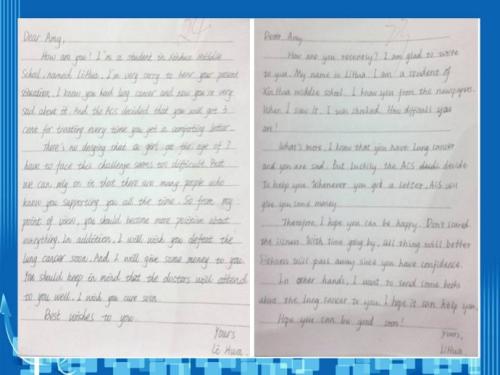 24
Dear Amy,
How are you! I'm a student in Xinhua Middle
School, named LiHua. I'm very sorry to hear your present
situation. I know you had lung cancer and now you're very
sad about it. And the ACS decided that you will get 5
cent for treating every time you get a comforting letter.
There's no denying that a girl at the age of 7
have to face this challenge seems too difficult. But
we can rely on it that there are many people who
know you supporting you all the time. So from my
point of view, you should become more positive about
everything. In addition, I will wish you defeat the
lung cancer soon. And I will give some money to you.
You should keep in mind that the doctors will attend
to you well. I wish you cure soon.
Best wishes to you.
Yours
Li Hua.
Dear Amy
How are you recently? I am glad to write
to you. My name is LiHua. I am a student of
XinHua middle school. I know you from the newspaper.
When I saw it. I was shocked. How difficult you
are!
What's more, I know that you have lung cancer
and you are sad. But luckily the ACS decide
to help you. Whenever you get a letter, ACS will
give you some money.
Therefore, I hope you can be happy. Don't scared
the illness. With time going by, all thing will better
Sickness will pass away since you have confidence.
In other hands, I want to send some books
about the lung cancer to you. I hope it can help you.
Hope you can be good soon!
Yours,
LiHua